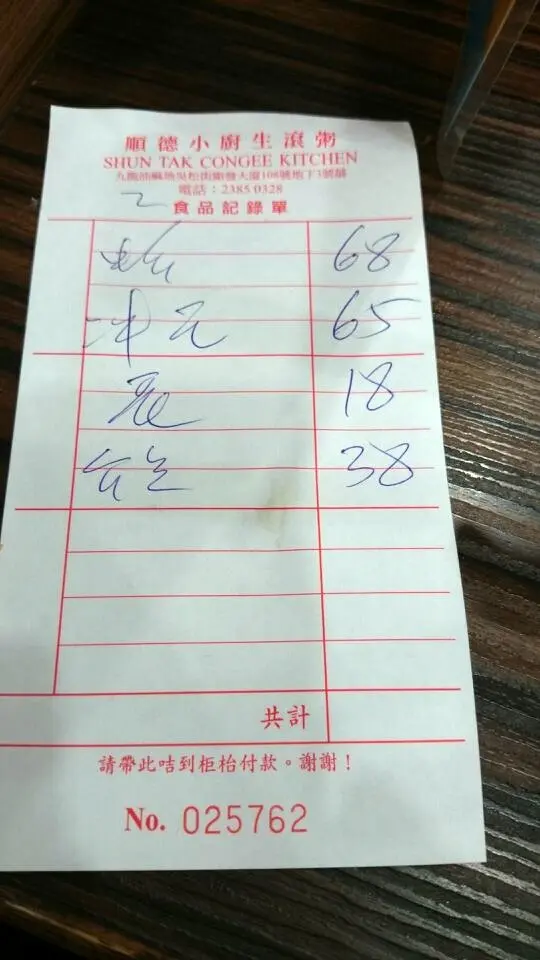 順德小廚生滾粥
SHUN TAK CONGEE KITCHEN
九龍油麻地吳松街衞發大廈108號地下3號舖
電話：2385 0328
食品記錄單
68
65
18
38
共計
請帶此咭到柜枱付款。謝謝！
No. 025762